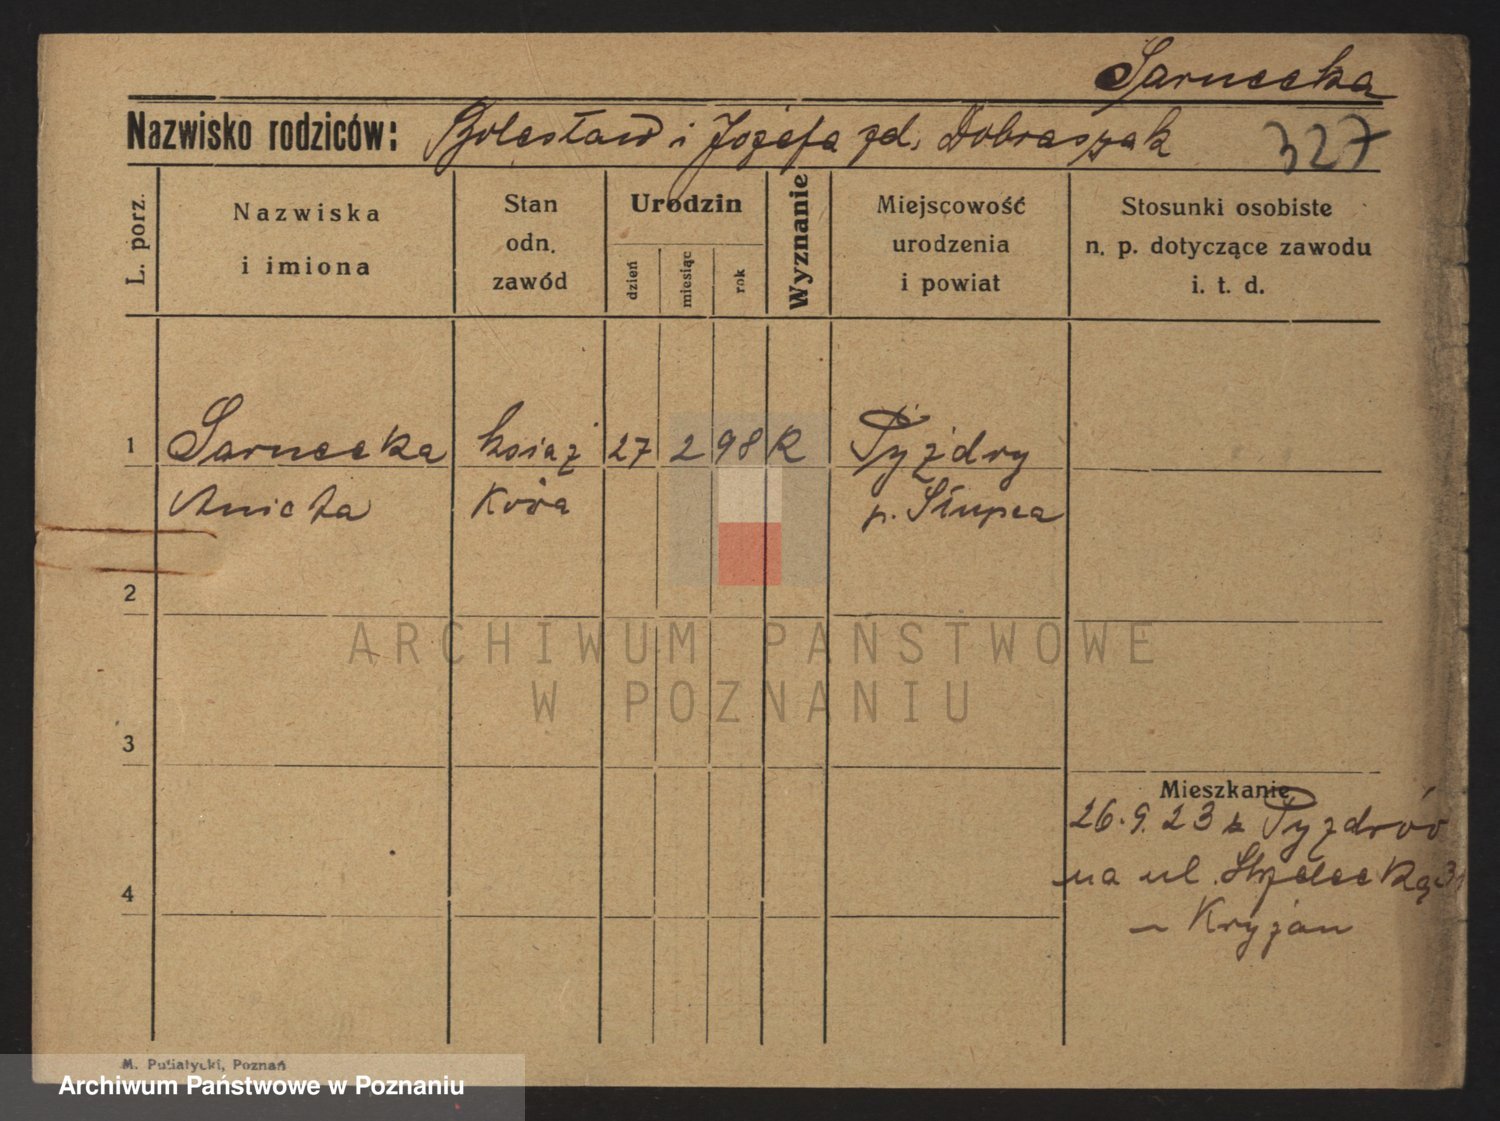 Sarnecka
Nazwisko rodziców: Bolesław i Józefa zd. Dobraszak 327
L. porz.
Nazwiska
i imiona
Stan
odn.
zawód
Urodzin
dzień
miesiąc
rok
Wyznanie
Miejscowość
urodzenia
i powiat
Stosunki osobiste
n. p. dotyczące zawodu
i. t. d.
1 Sarnecka książ 27 2 98 K Pyzdry
Anieta kowa p. Słupca
2
3
4
ARCHIWUM PAŃSTWOWE
W POZNANIU
Mieszkanie
26.9.23 z Pyzdrów
na ul. Strzelecką 31
Kryjan
M. Putiatycki, Poznań
Archiwum Państwowe w Poznaniu